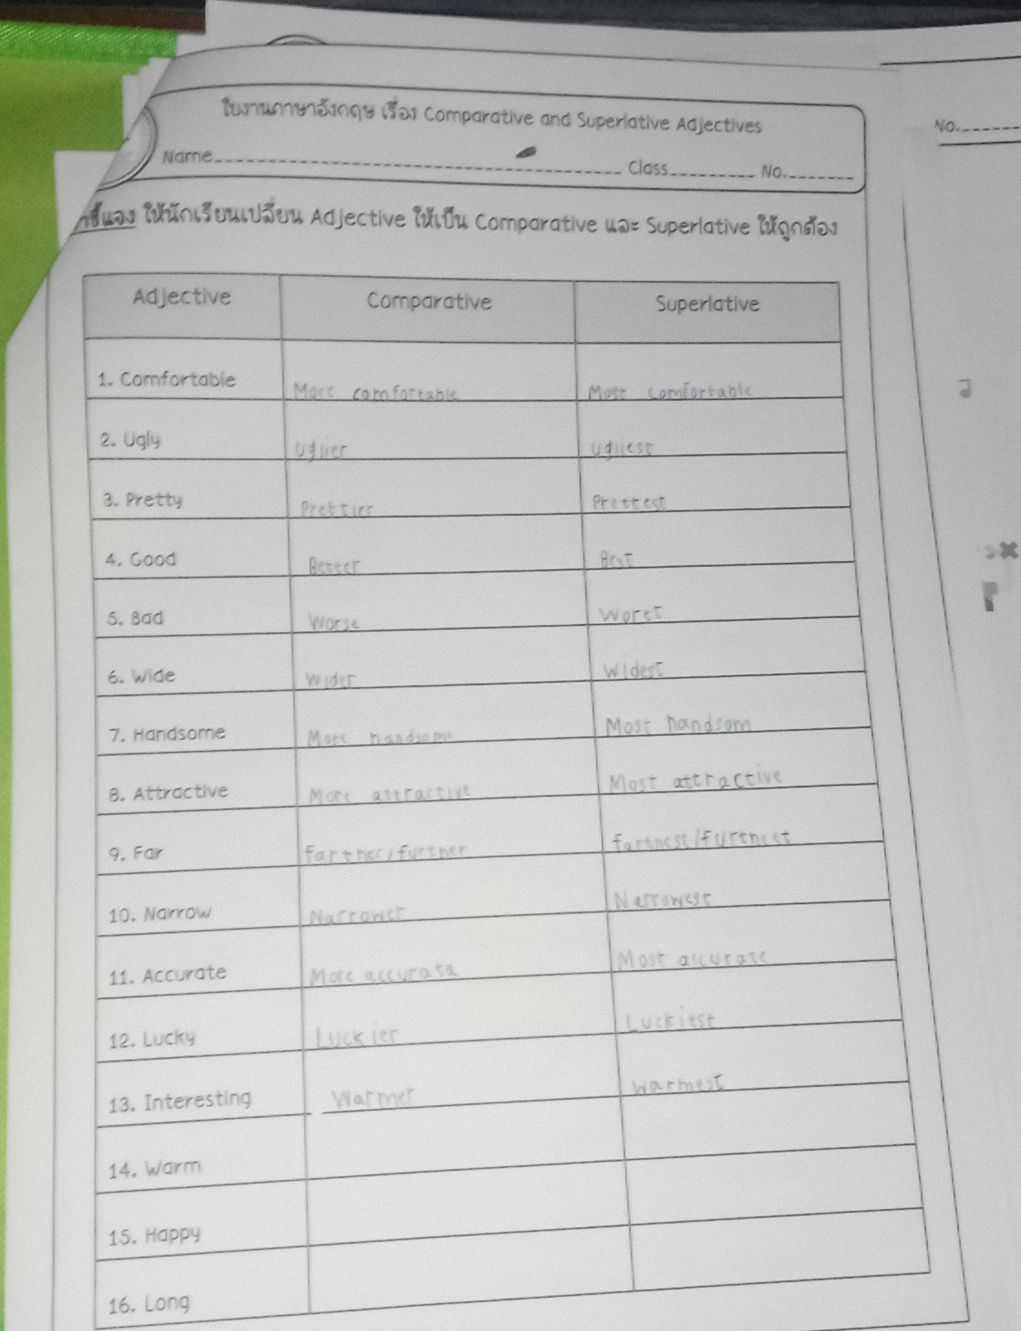 ใบงานภาษาอังกฤษ เรื่อง Comparative and Superlative Adjectives
Name Class No.
No.
ให้นักเรียนเปลี่ยน Adjective ให้เป็น Comparative และ Superlative ให้ถูกต้อง
Adjective Comparative Superlative
1. Comfortable More comfortable Most comfortable
2. Ugly Uglier Ugliest
3. Pretty Prettier Prettest
4. Good Better Best
5. Bad Worse Worst
6. Wide Wider Widest
7. Handsome More handsome Most handsom
8. Attractive More attractive Most attractive
9. Far farther/further farthest/furthest
10. Narrow Narrower Narrowest
11. Accurate More accurata Most accurate
12. Lucky Luckier Luckiest
13. Interesting Warmer Warmest
14. Warm
15. Happy
16. Long